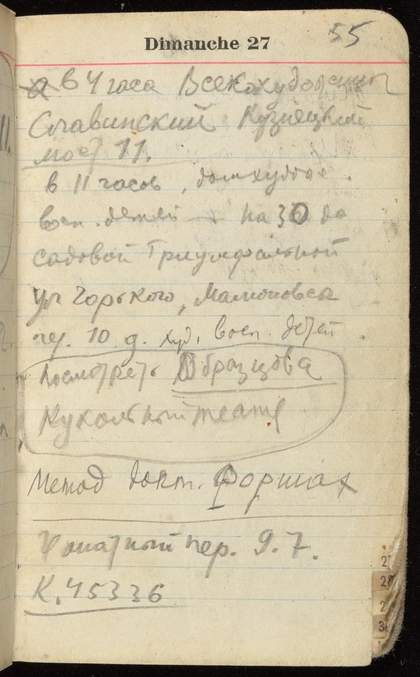 Dimanche 27
55
в 4 часа Всекохудожник
Славинский Кузнецкий
мост 11.
в 11 часов, дом худож.
восп. детей на 30 до
садовой Триумфальной
ул Горького, Мамоновск
пер. 10 д. худ. восп. детей
Посмотреть Образцова
Кукольный театр
Метод докт.
пер. 9.7.
К. 45336